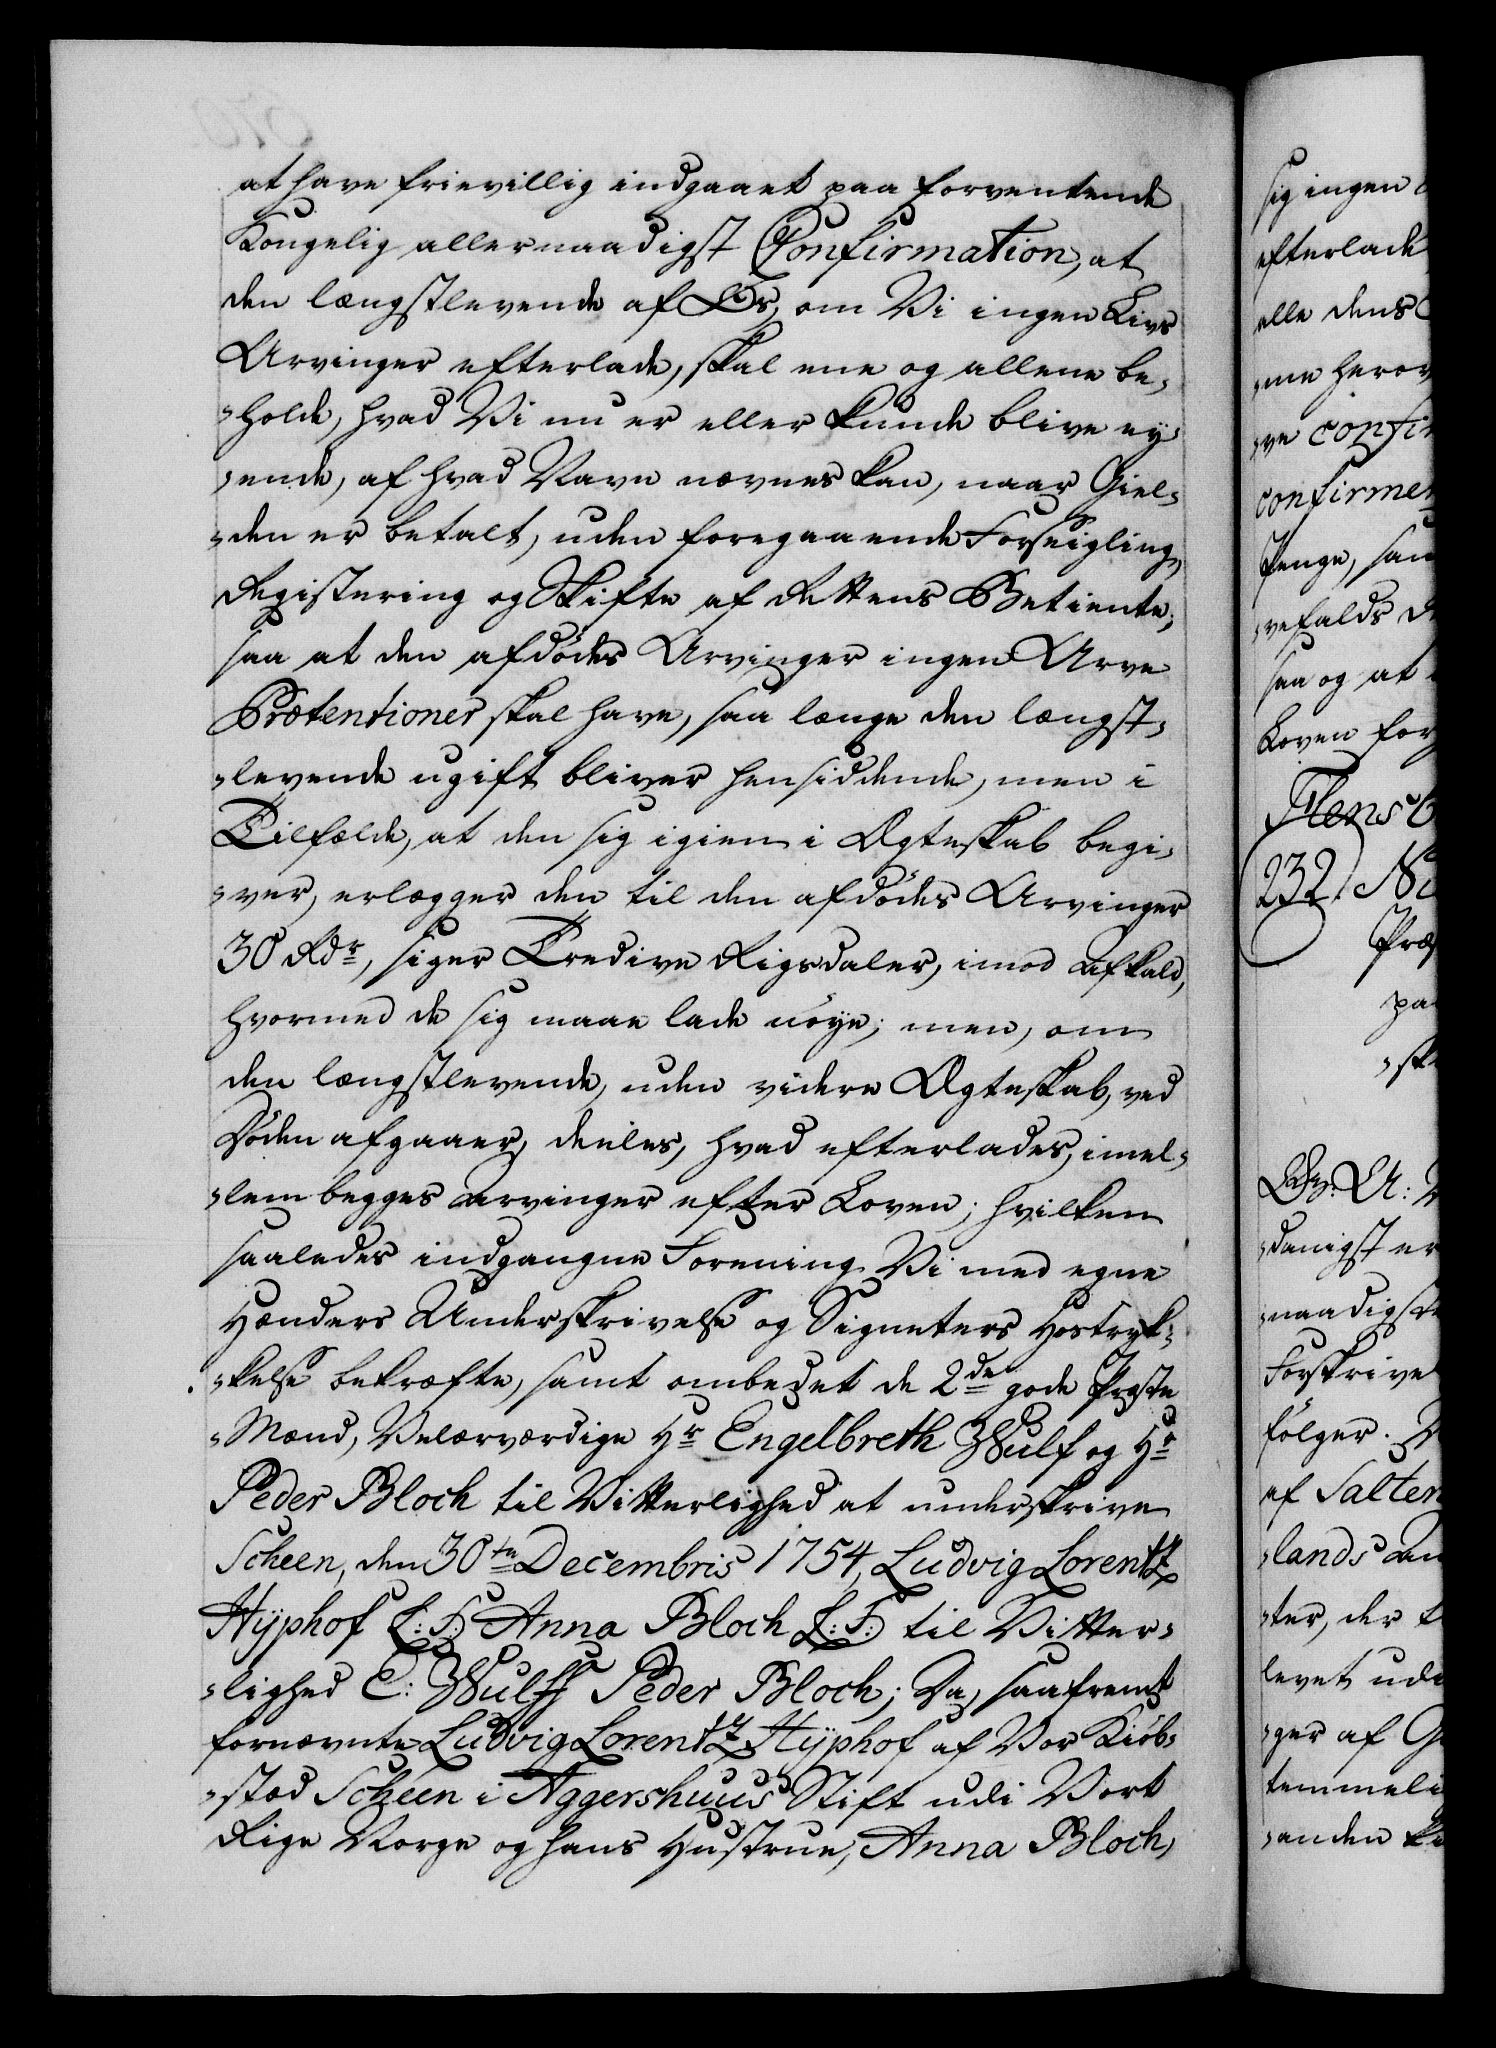 at have frievillig indgaaet paa forventende
Kongelig allernaadigst Confirmation, at
den længstlevende af Os, om Vi ingen Livs
Arvinger efterlade, skal ene og allene be-
-holde, hvad Vi nu er eller kunde blive ey-
-ende, af hvad Navn nævnes kan, naar Giel-
-den er betalt, uden foregaaende Forseigling,
Registering og Skifte af Rettens Betiente;
saa at den afdödes Arvinger ingen Arve
Prætentioner skal have, saa længe den længst-
-levende ugift bliver hensiddende, men i
Tilfælde, at den sig igien i Ægteskab begi-
-ver, erlægger den til den afdödes Arvinger
30 Rdr, siger Tredive Rigsdaler, imod Afkald,
hvormed de sig maae lade nöye; men, om
den længstlevende, uden videre Ægteskab, ved
Döden afgaaer, deeles, hvad efterlades, imel-
-lem begges Arvinger efter Loven; hvilken
saaledes indgangne Forening Vi med egne
Hænders Underskrivelse og Signeters Hostryk-
-kelse bekræfte, samt ombedet de 2de gode Præste
-Mænd, Velærværdige Hr Engelbreth Wulf og Hr
Peder Bloch til Vitterlighed at underskrive
Scheen, den 30te Decembris 1754, Ludvig Lorentz
Hÿphof L: S: Anna Bloch L: S: til Vitter-
-lighed E: Wulff Peder Bloch; Da, saafremt
fornævnte Ludvig Lorentz Hÿphof af Vor Kiöb-
-stæd Scheen i Aggershuus Stift udi Vort
Rige Norge og hans Hustrue, Anna Bloch,
sig ingen
efterlade
elle dens
-me herov
-ve confir
confirmer
Penge, saa
-vefalds
saa og at
Loven for
Flensb
232. Ni
Præ
paa
-sk
Gr: A:
-danigst er
-naadigste
Forskrive
fölger.
af Salten
-lands An
-ter, der
levet udi
-ger af G
temmeli
-anden